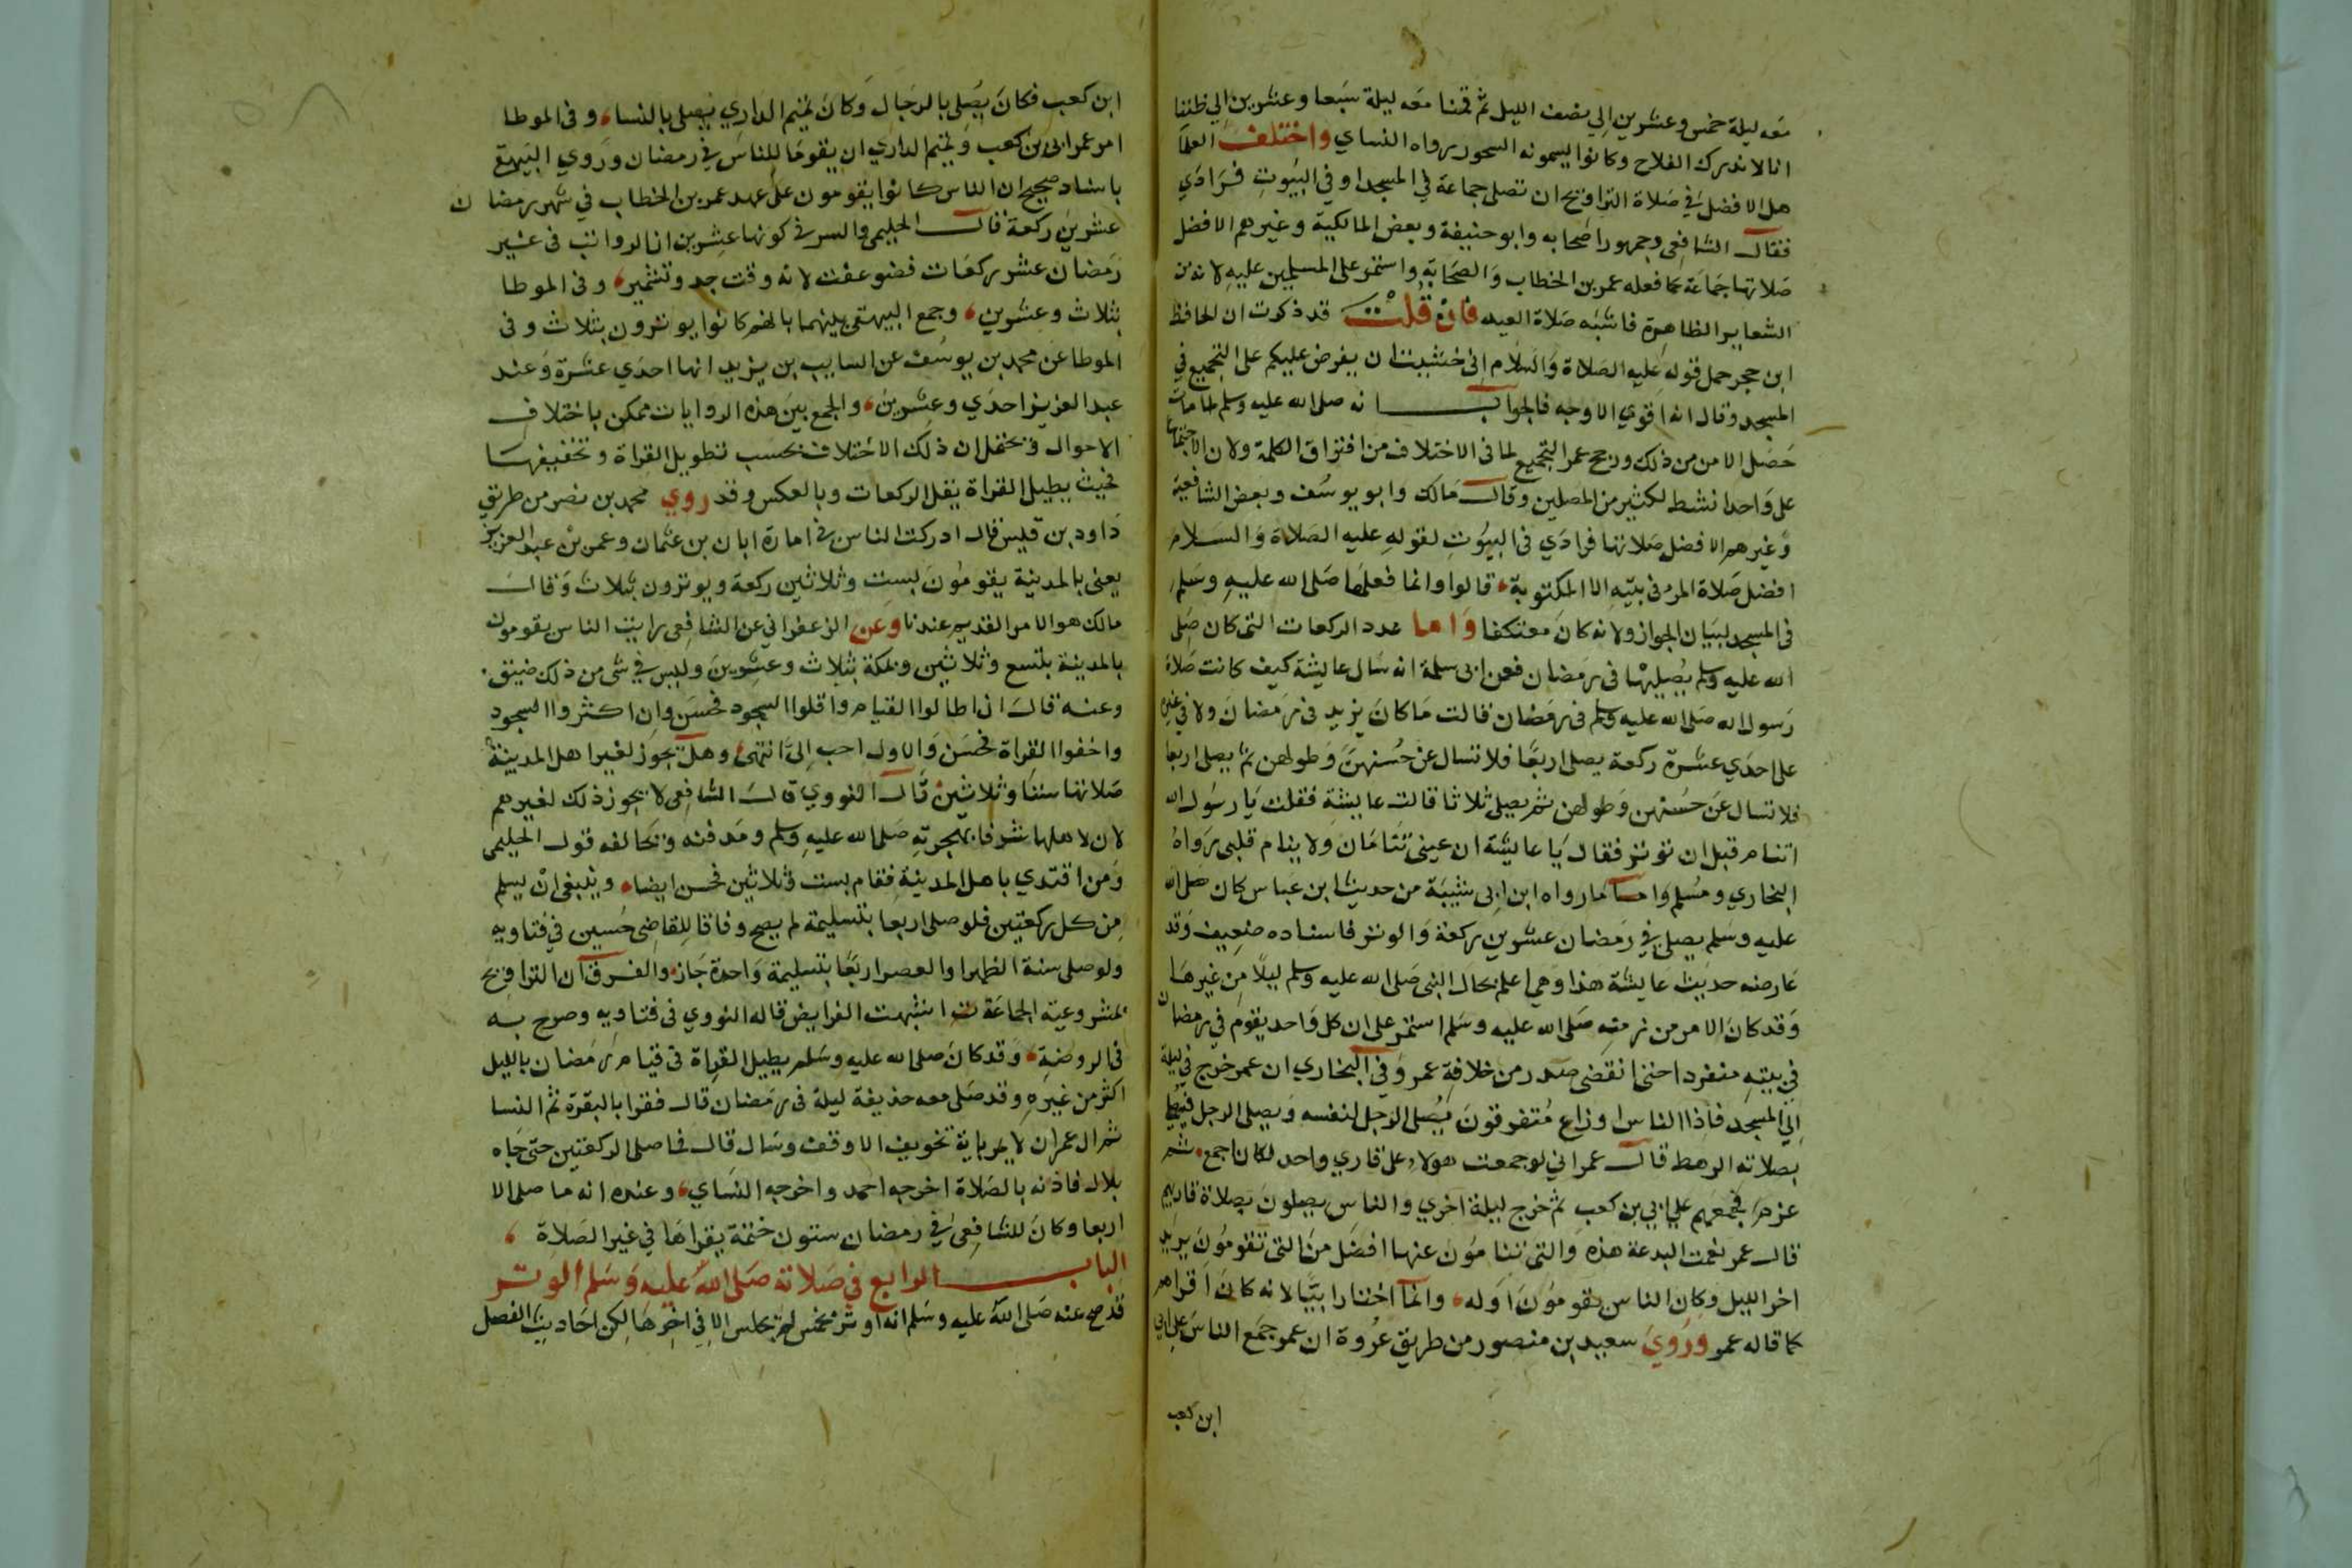 معه ليلة خمس وعشرين الي نصف الليل ثم قمنا معه ليلة سبعا وعشرين الي ظننا
انا لا ندرك الفلاح وكانوا يسمونه السحور رواه النساي واختلف العلما
هل الافضل في صلاة التراويح ان تصلي جماعة في المسجد او في البيوت فرادي
فقال الشافعي وجمهور اصحابه وابو حنيفة وبعض المالكية وغيرهم الافضل
صلاتها جماعة كما فعله عمر بن الخطاب والصحابة واستمر على المسلمين عليه لانه من
الشعاير الظاهرة فاشبه صلاة العيد فان قلت قد ذكرت ان الحافظ
ابن حجر حمل قوله عليه الصلاة والسلام اني خشيت ان يفرض عليكم على التجميع في
المسجد وقال انه اقوي الاوجه فالجواب انه صلى الله عليه وسلم لما مات
حصل الامن من ذلك ورجح عمر التجميع لما في الاختلاف من افتراق الكلمة ولان الاجتماع
على واحد انشط لكثير من المصلين وقال مالك وابو يوسف وبعض الشافعية
وغيرهم الافضل صلاتها فرادي في البيوت لقوله عليه الصلاة والسلام
افضل صلاة المرء في بيته الا المكتوبة قالوا وانما فعلها صلى الله عليه وسلم
في المسجد لبيان الجواز ولانه كان معتكفا واما عدد الركعات التي كان صلى
الله عليه وسلم يصليها في رمضان فعن ابي سلمة انه سال عايشة كيف كانت صلاة
رسول الله صلى الله عليه وسلم في رمضان قالت ما كان يزيد في رمضان ولا في غيره
على احدي عشرة ركعة يصلي اربعا فلا تسال عن حسنهن وطولهن ثم يصلي اربعا
فلا تسال عن حسنهن وطولهن ثم يصلي ثلاثا قالت عايشة فقلت يا رسول الله
اتنام قبل ان توتر فقال يا عايشة ان عيني تنامان ولا ينام قلبي رواه
البخاري ومسلم واما ما رواه ابن ابي شيبة من حديث ابن عباس كان صلى الله
عليه وسلم يصلي في رمضان عشرين ركعة والوتر فاسناده ضعيف وقد
عارضه حديث عايشة هذا وهي اعلم بحال النبي صلى الله عليه وسلم ليلا من غيرها
وقد كان الامر من زمنه صلى الله عليه وسلم استمر على ان كل واحد يقوم في رمضان
في بيته منفردا حتى انقضى صدر من خلافة عمر وفي البخاري ان عمر خرج في ليلة
الي المسجد فاذا الناس اوزاع متفرقون يصلي الرجل لنفسه ويصلي الرجل فيصلي
بصلاته الرهط قال عمر اني لو جمعت هولاء على قاري واحد لكان اجمع ثم
عزم فجمعهم على ابي بن كعب ثم خرج ليلة اخري والناس يصلون بصلاة قاريهم
قال عمر نعمت البدعة هذه والتي تنامون عنها افضل من التي تقومون يريد
اخر الليل وكان الناس يقومون اوله وانما اختار ابيا لانه كان اقراهم
كما قاله عمر وروي سعيد بن منصور من طريق عروة ان عمر جمع الناس على ابي
ابن كعب
ابن كعب فكان يصلي بالرجال وكان تميم الداري يصلي بالنساء وفي الموطا
امر عمر ابي بن كعب وتميم الداري ان يقوما للناس في رمضان وروي البيهقي
باسناد صحيح ان الناس كانوا يقومون على عهد عمر بن الخطاب في شهر رمضان
عشرين ركعة قال الحليمي والسر في كونها عشرين ان الرواتب في غير
رمضان عشر ركعات فضوعفت لانه وقت جد وتشمير وفي الموطا
بثلاث وعشرين وجمع البيهقي بينهما بانهم كانوا يوترون بثلاث وفي
الموطا عن محمد بن يوسف عن السايب بن يزيد انها احدي عشرة وعند
عبد العزيز احدي وعشرين والجمع بين هذه الروايات ممكن باختلاف
الاحوال ويحتمل ان ذلك الاختلاف بحسب تطويل القراة وتخفيفها
فحيث يطيل القراة يقل الركعات وبالعكس وقد روي محمد بن نصر من طريق
داود بن قيس قال ادركت الناس في امارة ابان بن عثمان وعمر بن عبد العزيز
يعني بالمدينة يقومون بست وثلاثين ركعة ويوترون بثلاث وقال
مالك هو الامر القديم عندنا وعن الزعفراني عن الشافعي رايت الناس يقومون
بالمدينة بتسع وثلاثين وبمكة بثلاث وعشرين وليس في شي من ذلك ضيق
وعنه قال ان اطالوا القيام واقلوا السجود فحسن وان اكثروا السجود
واخفوا القراة فحسن والاول احب الي انتهى وهل يجوز لغير اهل المدينة
صلاتها ستا وثلاثين قال النووي قال الشافعي لا يجوز ذلك لغيرهم
لان لاهلها شرفا بهجرته صلى الله عليه وسلم ومدفنه ويخالفه قول الحليمي
ومن اقتدي باهل المدينة فقام بست وثلاثين فحسن ايضا وينبغي ان يسلم
من كل ركعتين فلو صلى اربعا بتسليمة لم يصح وفاقا للقاضي حسين في فتاويه
ولو صلى سنة الظهر او العصر اربعا بتسليمة واحدة جاز والفرق ان التراويح
بمشروعية الجماعة اشبهت الفرايض قاله النووي في فتاويه وصرح به
في الروضة وقد كان صلى الله عليه وسلم يطيل القراة في قيام رمضان بالليل
اكثر من غيره وقد صلى معه حذيفة ليلة في رمضان قال فقرا بالبقرة ثم النسا
ثم ال عمران لا يمر باية تخويف الا وقف وسال قال فما صلى الركعتين حتى جاه
بلال فاذنه بالصلاة اخرجه احمد واخرجه النساي وعنده انه ما صلى الا
اربعا وكان للشافعي في رمضان ستون ختمة يقراها في غير الصلاة
الباب الرابع في صلاته صلى الله عليه وسلم الوتر
قد صح عنه صلى الله عليه وسلم انه اوتر بخمس لم يجلس الا في اخرها لكن احاديث الفصل